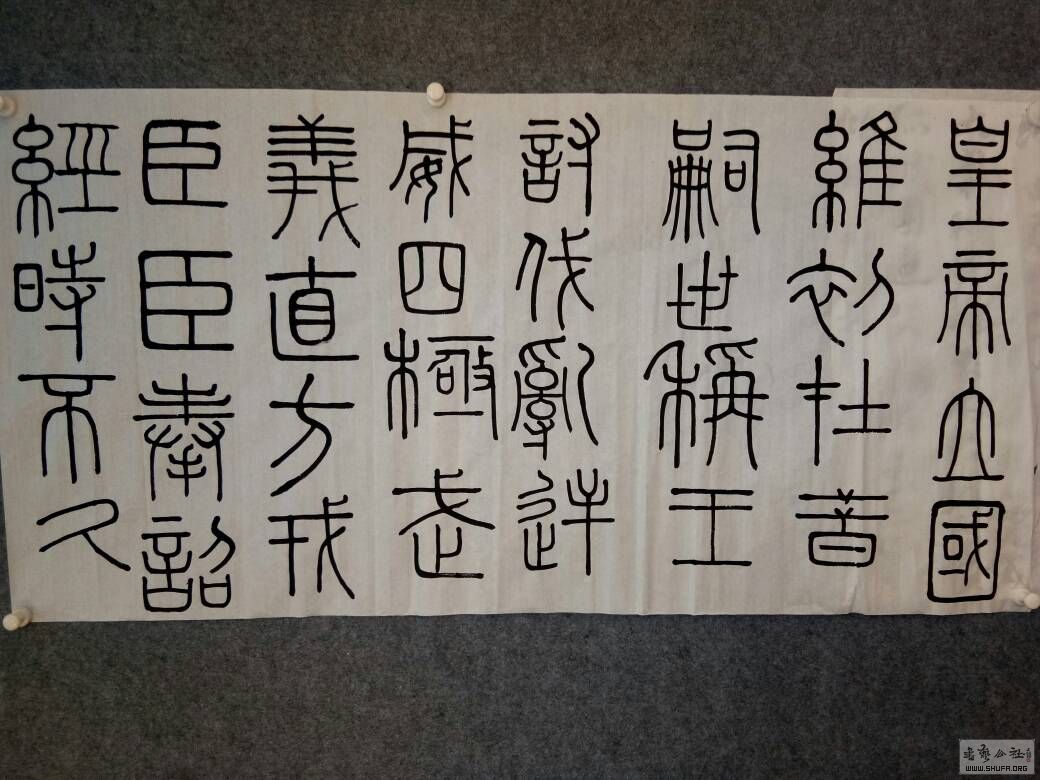 皇帝立國
維初在昔
嗣世稱王
討伐亂逆
威四極武
義直方戎
臣臣奉詔
經時不久
書藝公社
WWW.SHUFA.ORG